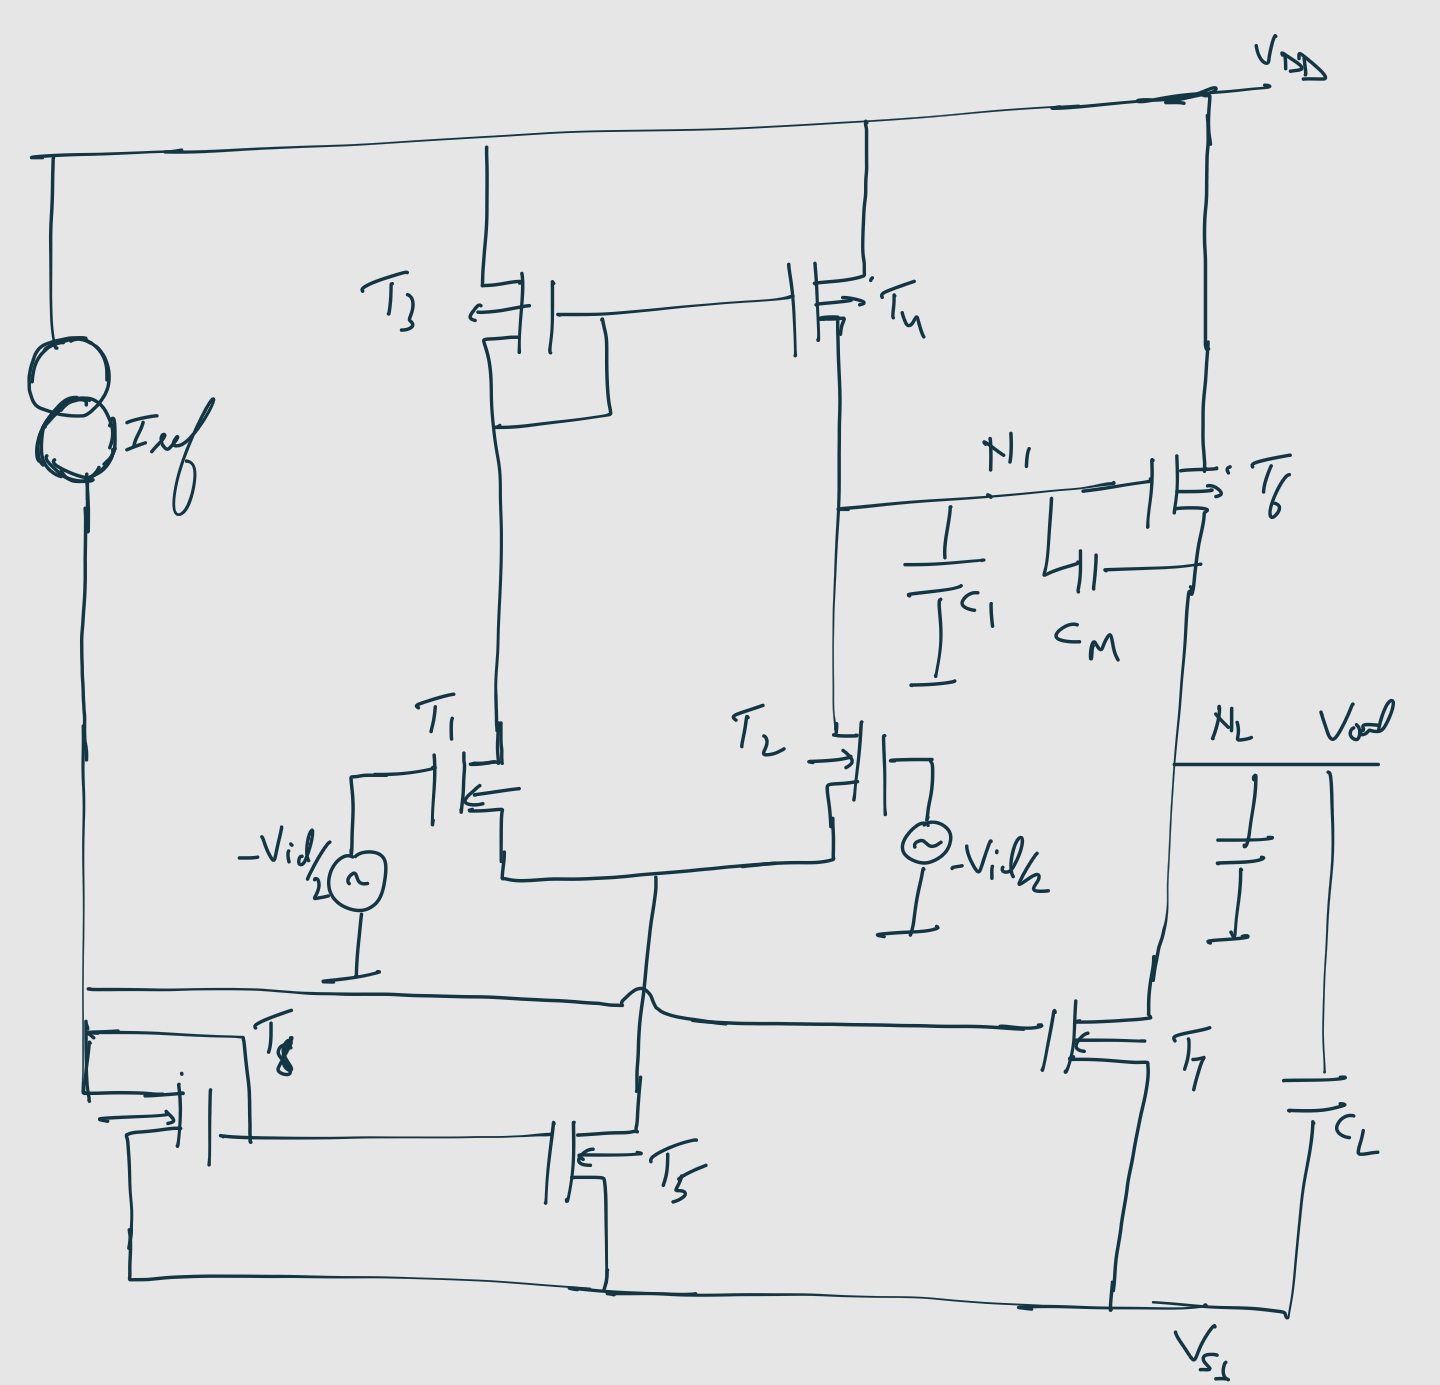 VDD
T3
T4
Iref
N1
T6
C1
CM
T1
T2
N2
Vout
-Vid/2
-Vid/2
T8
T7
T5
CL
VS1